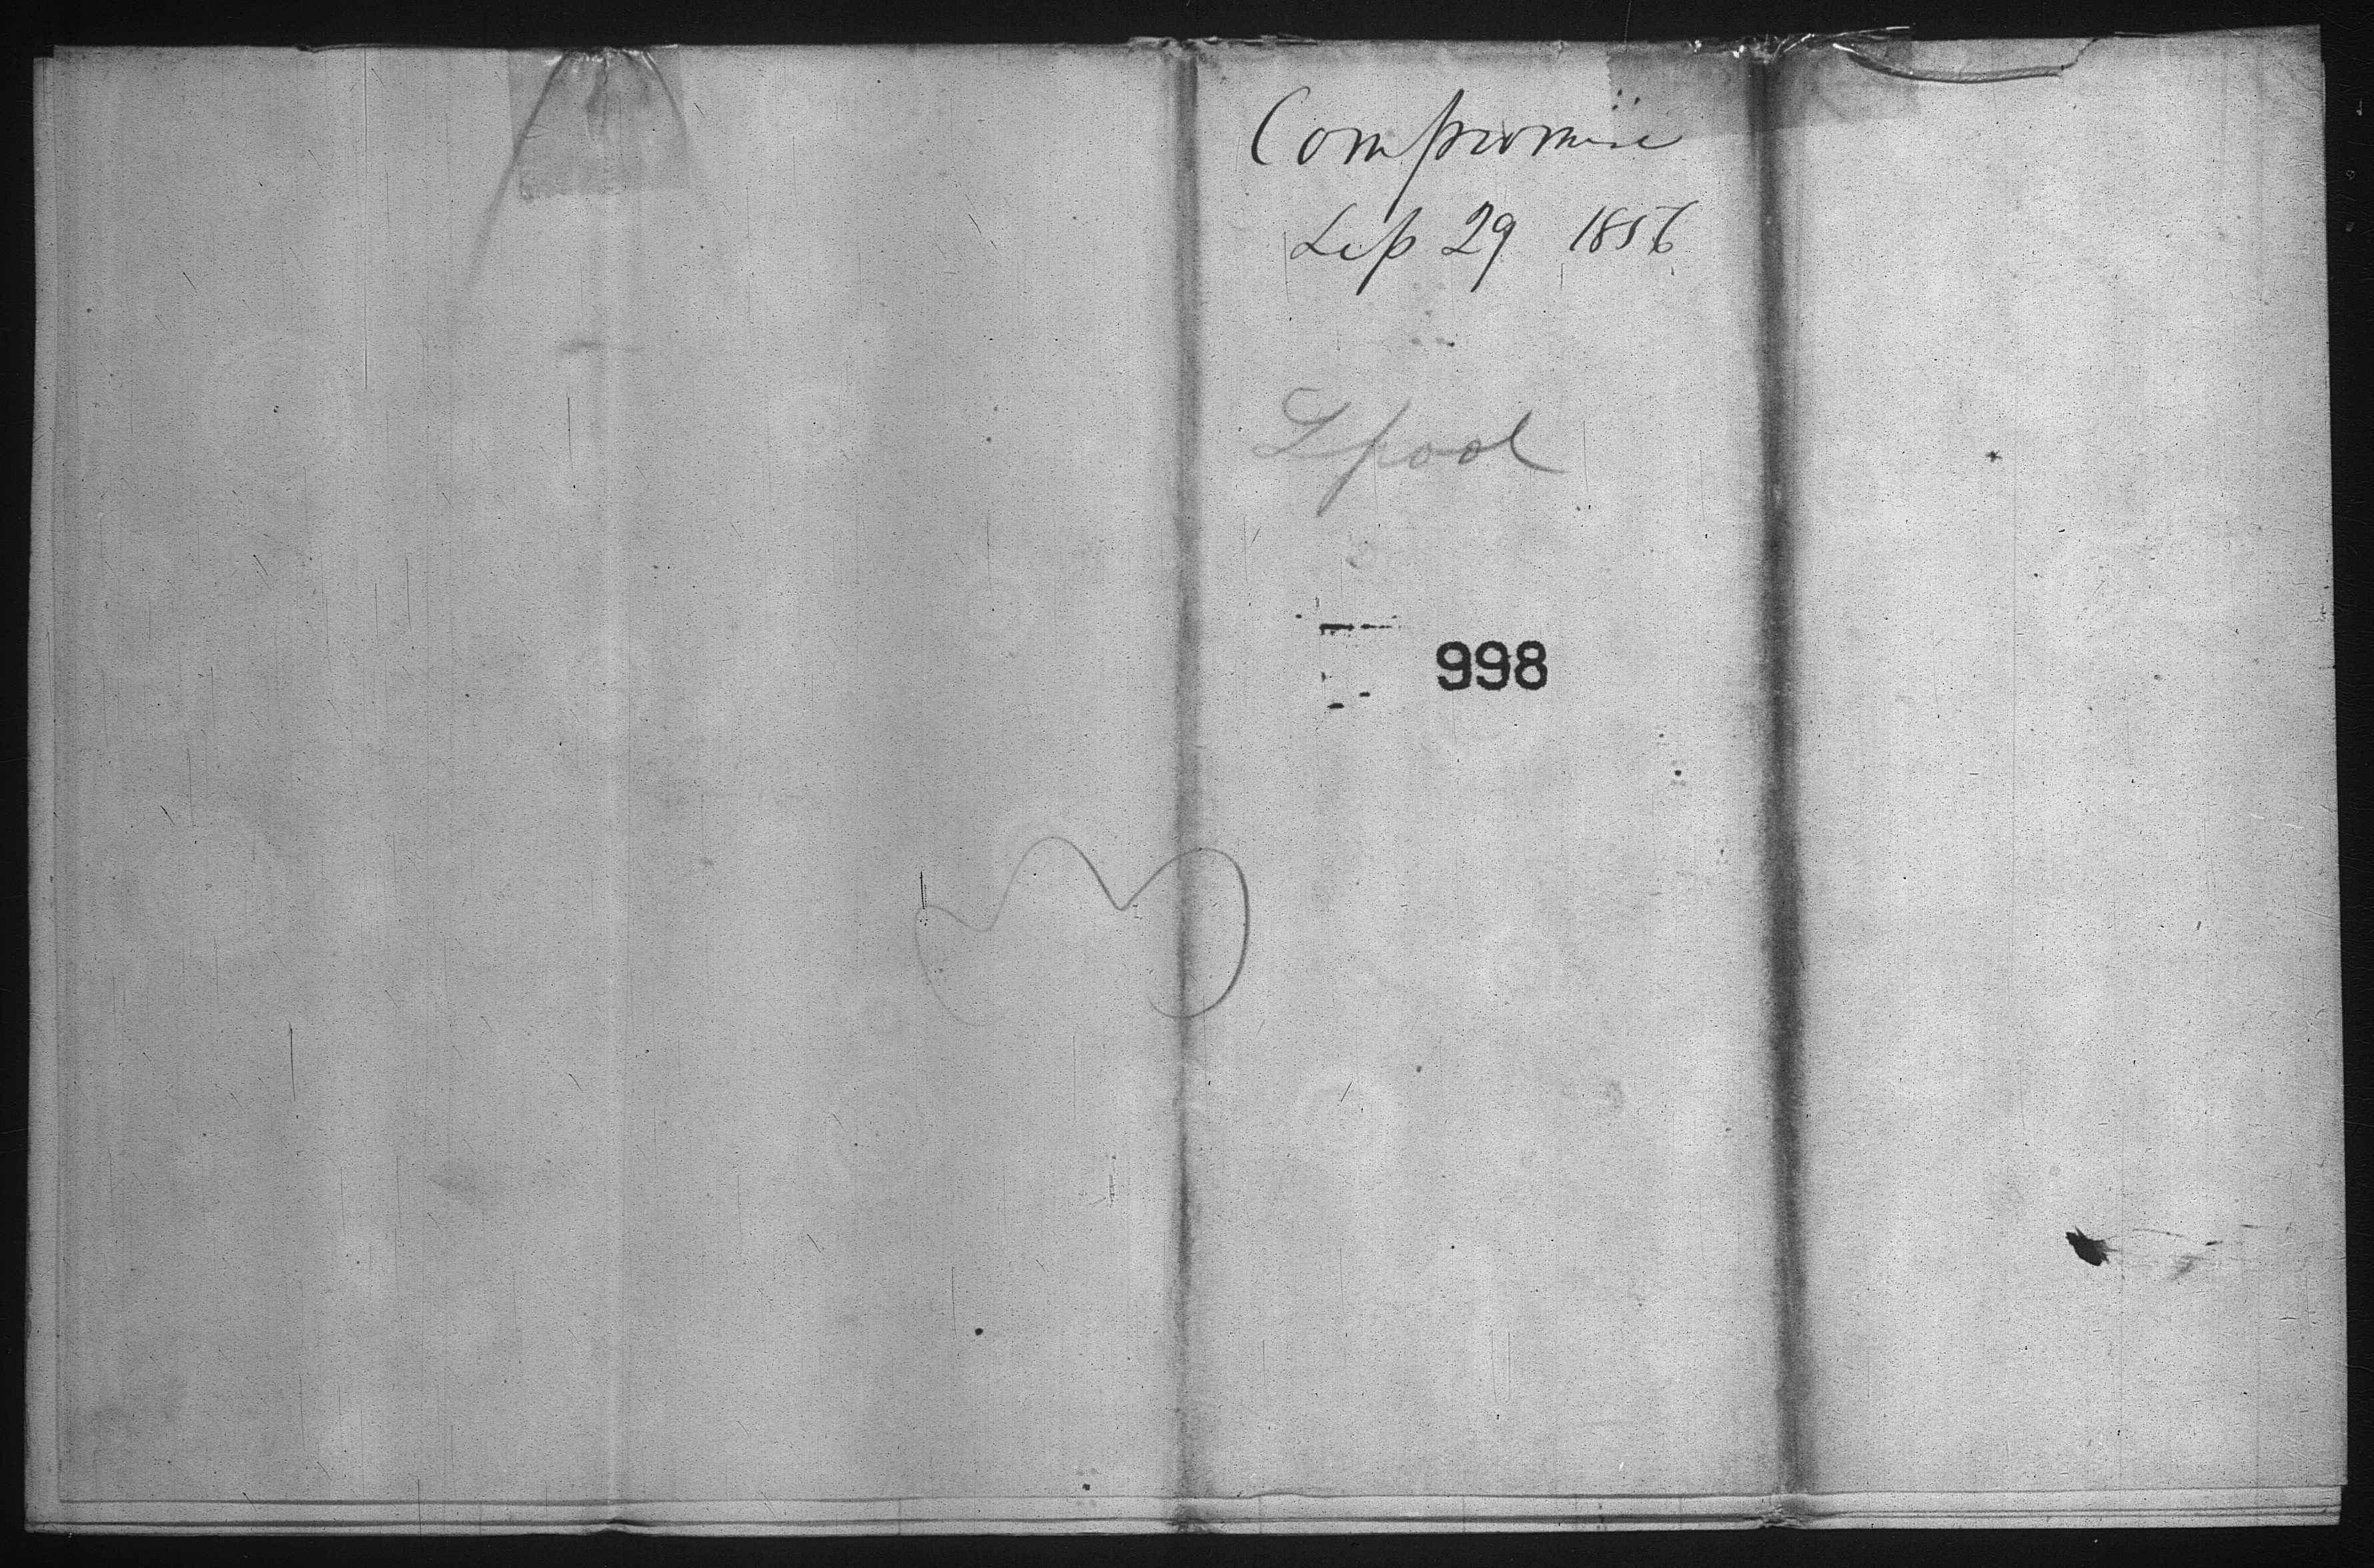 Compromise
Sep 29 1856
Lpool
998